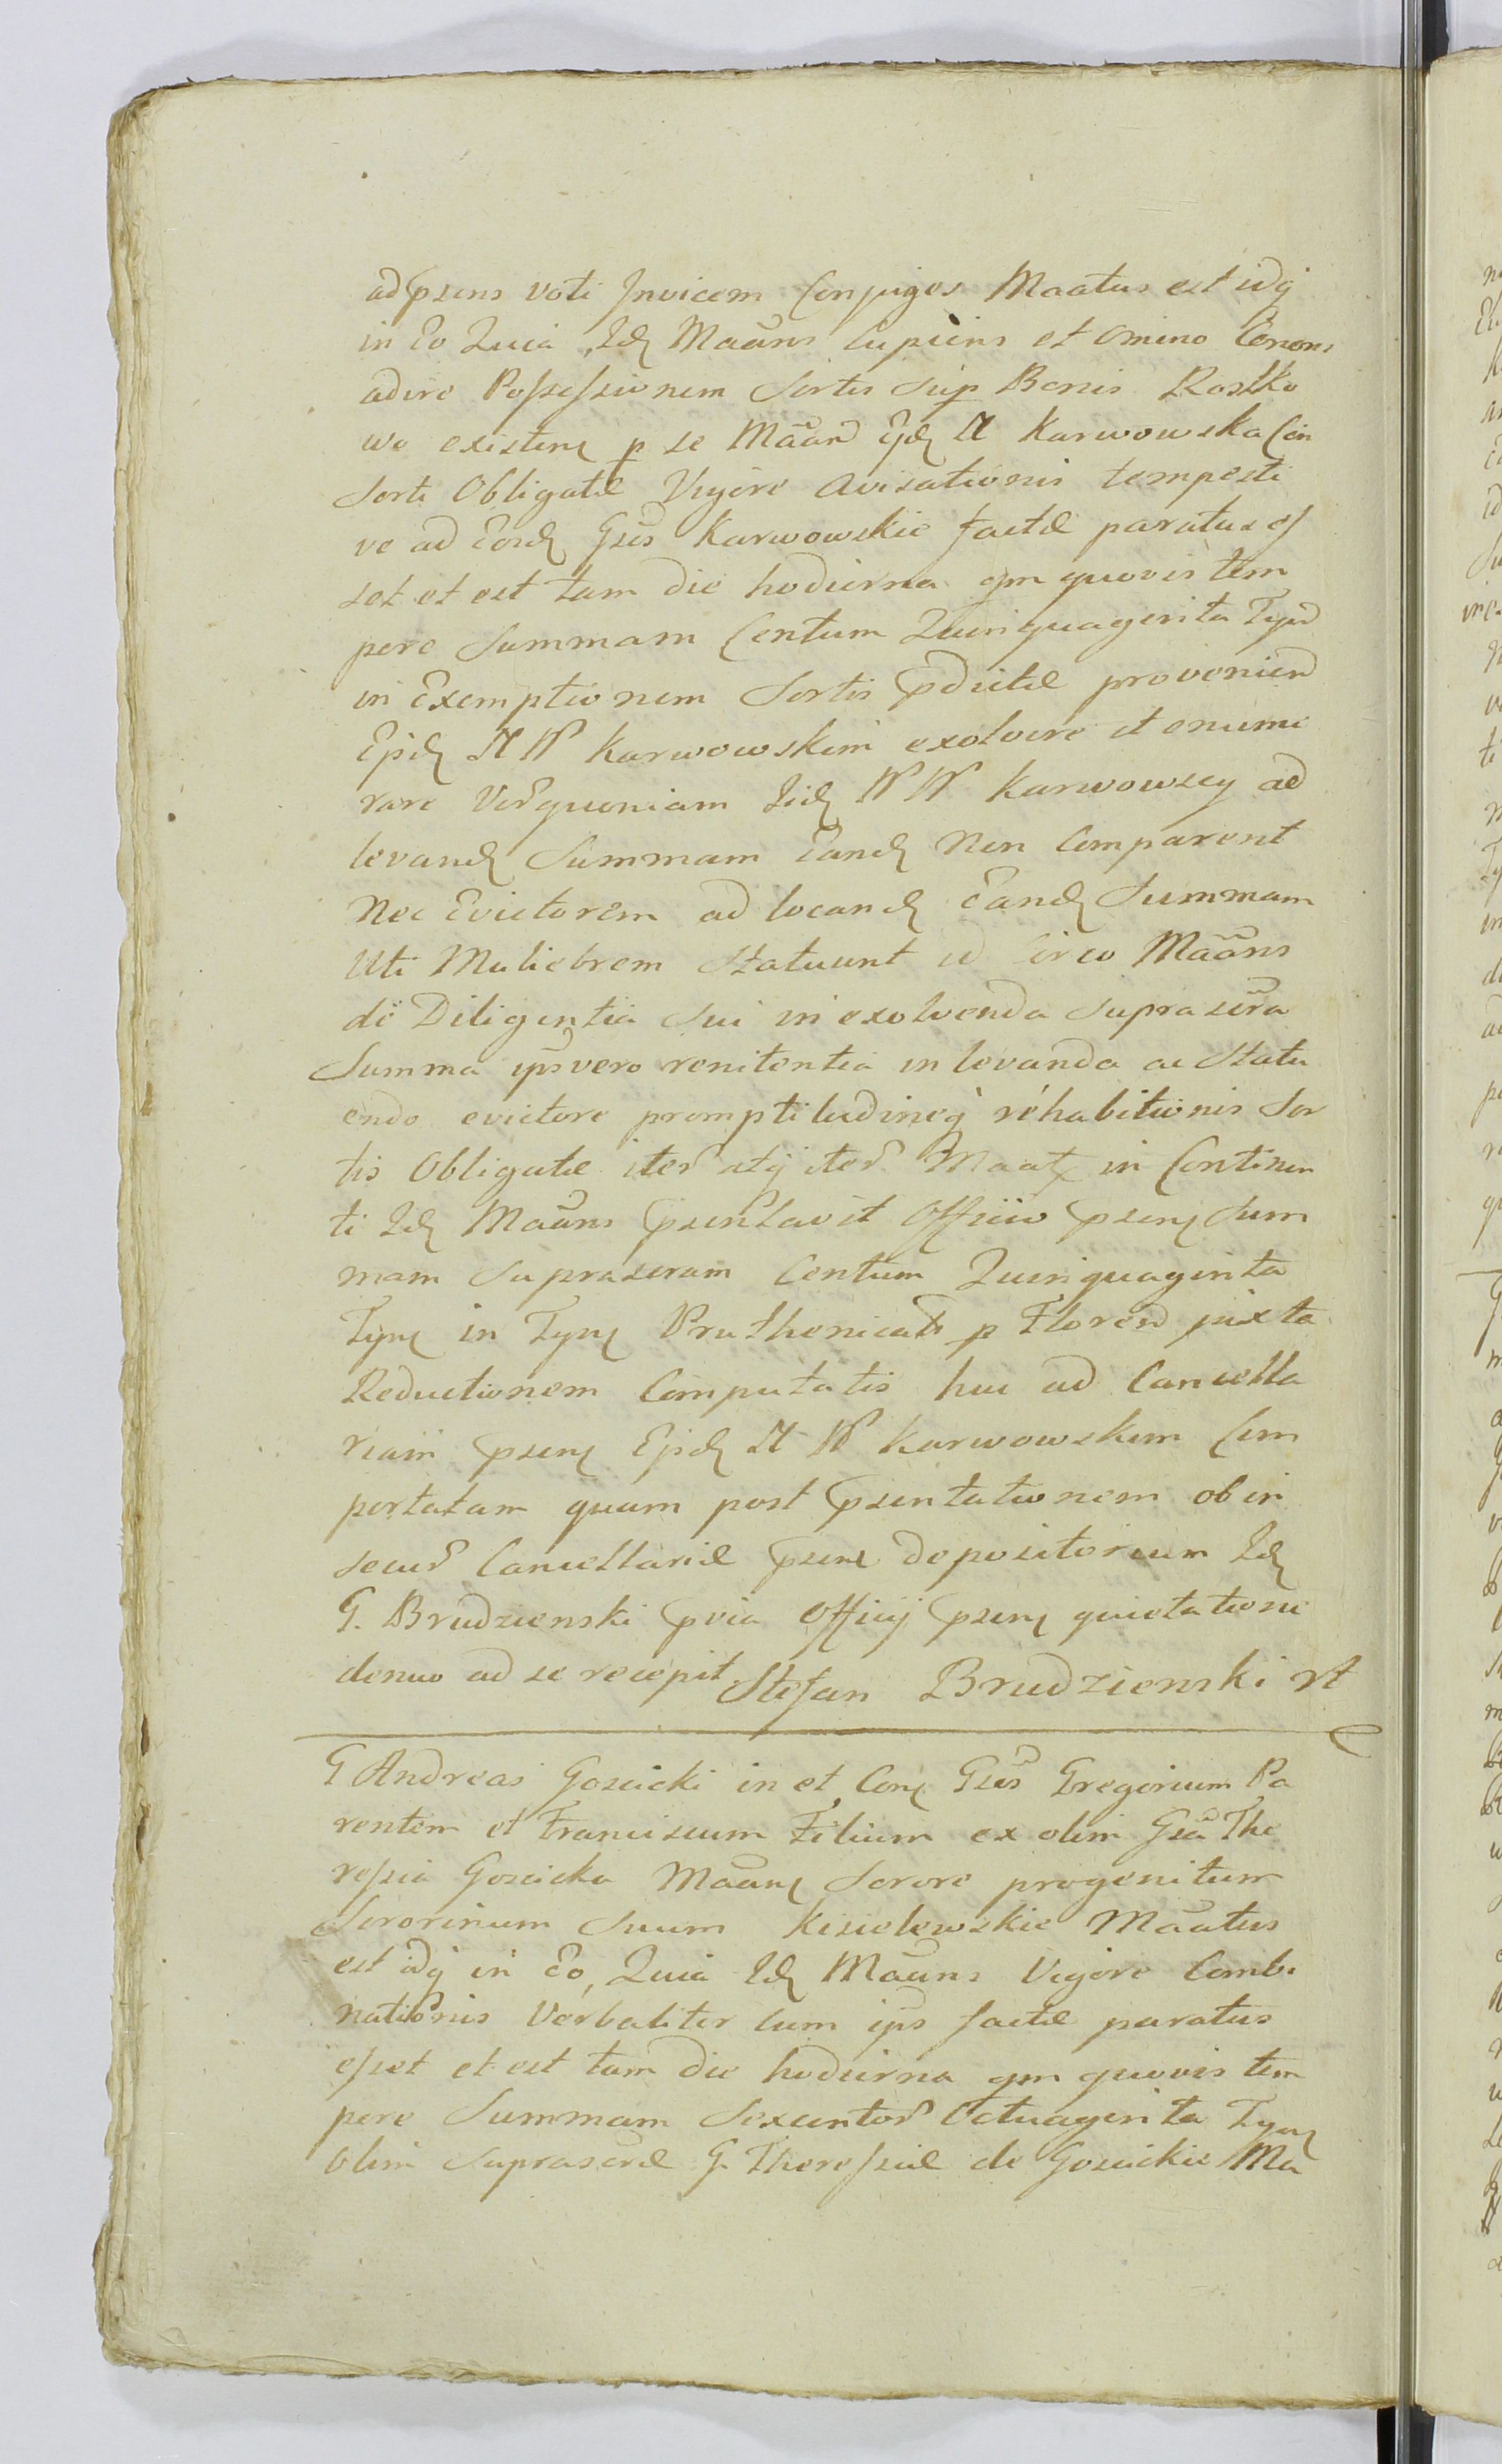 ad p̄sens voti Invicem Conjuges Maātus est idq
in Eo Quia Idɛ Maāns Cupiens et omino Conans
adire Possessionem Sortis Sup Bonis Rostko
wo existenɛ p se Maān Ejdɛ M Karwowska Con
sorti Obligatæ Vigore avisationis tempesti
ve ad Eosdɛ Gsos Karwowskie factæ paratus es
set et est tam die hodierna qm quovis tem
pore Summam Centum Quinquaginta Tynf
in Exemptionem Sortis p̄dictæ provenien
Epdɛ M W Karwowskim exolvere et enume
rare Verquoniam Iidɛ W W Karwowscy ad
levandɛ Summam Eandɛ Non Comparent
Nec Evictorem ad locandɛ Eandɛ Summam
Uti Muliebrem Statuunt id Circo Maāns
de Diligentia Sui in exolvenda suprascra
Summa ips vero renitentia in levanda ac Statu
endo evictore promptitudineq rehabitionis Sor
tis Obligatæ iter atq iter Maatɛ in Continen
ti Idɛ Maāns p̄sentavit Officio p̄senɛ Sum
mam Suprascram Centum Quinquaginta
Tynɛ in Tynɛ Pruthenicals p Floren juxta
Reductionem Computatis huc ad Cancella
riam p̄senɛ Epdɛ M W Karwowskim Com
portatam quam post p̄sentationem ob in
secur Cancellariæ p̄senɛ depositorium Idɛ
G. Brudzienski p̄via Officij p̄senɛ quietatione
denuo ad se recepit Stefan Brudzienski
G Andreas Goscicki in et Conɛ Gsos Gregorium Pa
rentem et Franciscum Filium ex olim Gsa The
ressia Goscicka Maānɛ Sorore progenitum
Sororinum Suum Kisielewskie Maātus
est idq in Eo, Quia Idɛ Maāns Vigore Combi
nationis Verbaliter cum ips factæ paratus
esset et est tam die hodierna qm quovis tem
pore Summam Sexcentor Octuaginta Tynɛ
olim Suprascræ G. Theressiæ de Goscickie Ma